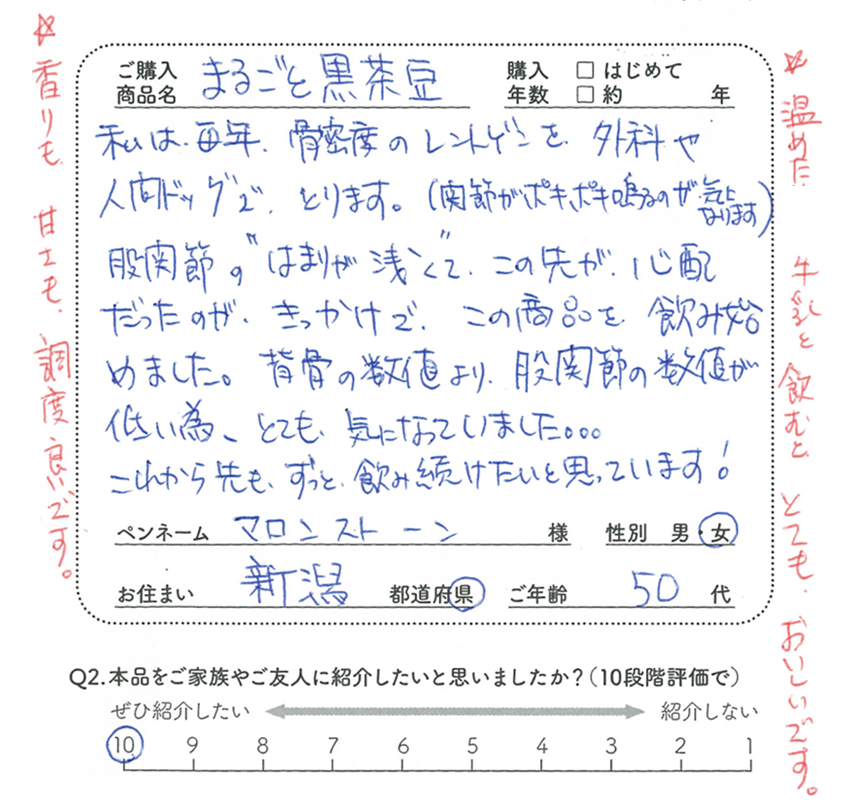 ご購入
商品名
まるごと黒茶豆
購入
年数
□ はじめて
□ 約 年
私は、毎年、骨密度のレントゲンを、外科や
人間ドッグで、とります。(関節がポキポキ鳴るのが気になります)
股関節の"はまりが浅く"て、この先が、心配
だったのが、きっかけで、この商品を、飲み始
めました。背骨の数値より、股関節の数値が
低い為、とても、気になっていました。。。
これから先も、ずっと、飲み続けたいと思っています!
ペンネーム マロンストーン 様 性別 男・女
お住まい 新潟 都道府県 ご年齢 50 代
☆温めた牛乳と飲むと、とても、おいしいです。
☆香りも、甘さも、調度良いです。
Q2.本品をご家族やご友人に紹介したいと思いましたか?(10段階評価で)
ぜひ紹介したい 紹介しない
10 9 8 7 6 5 4 3 2 1